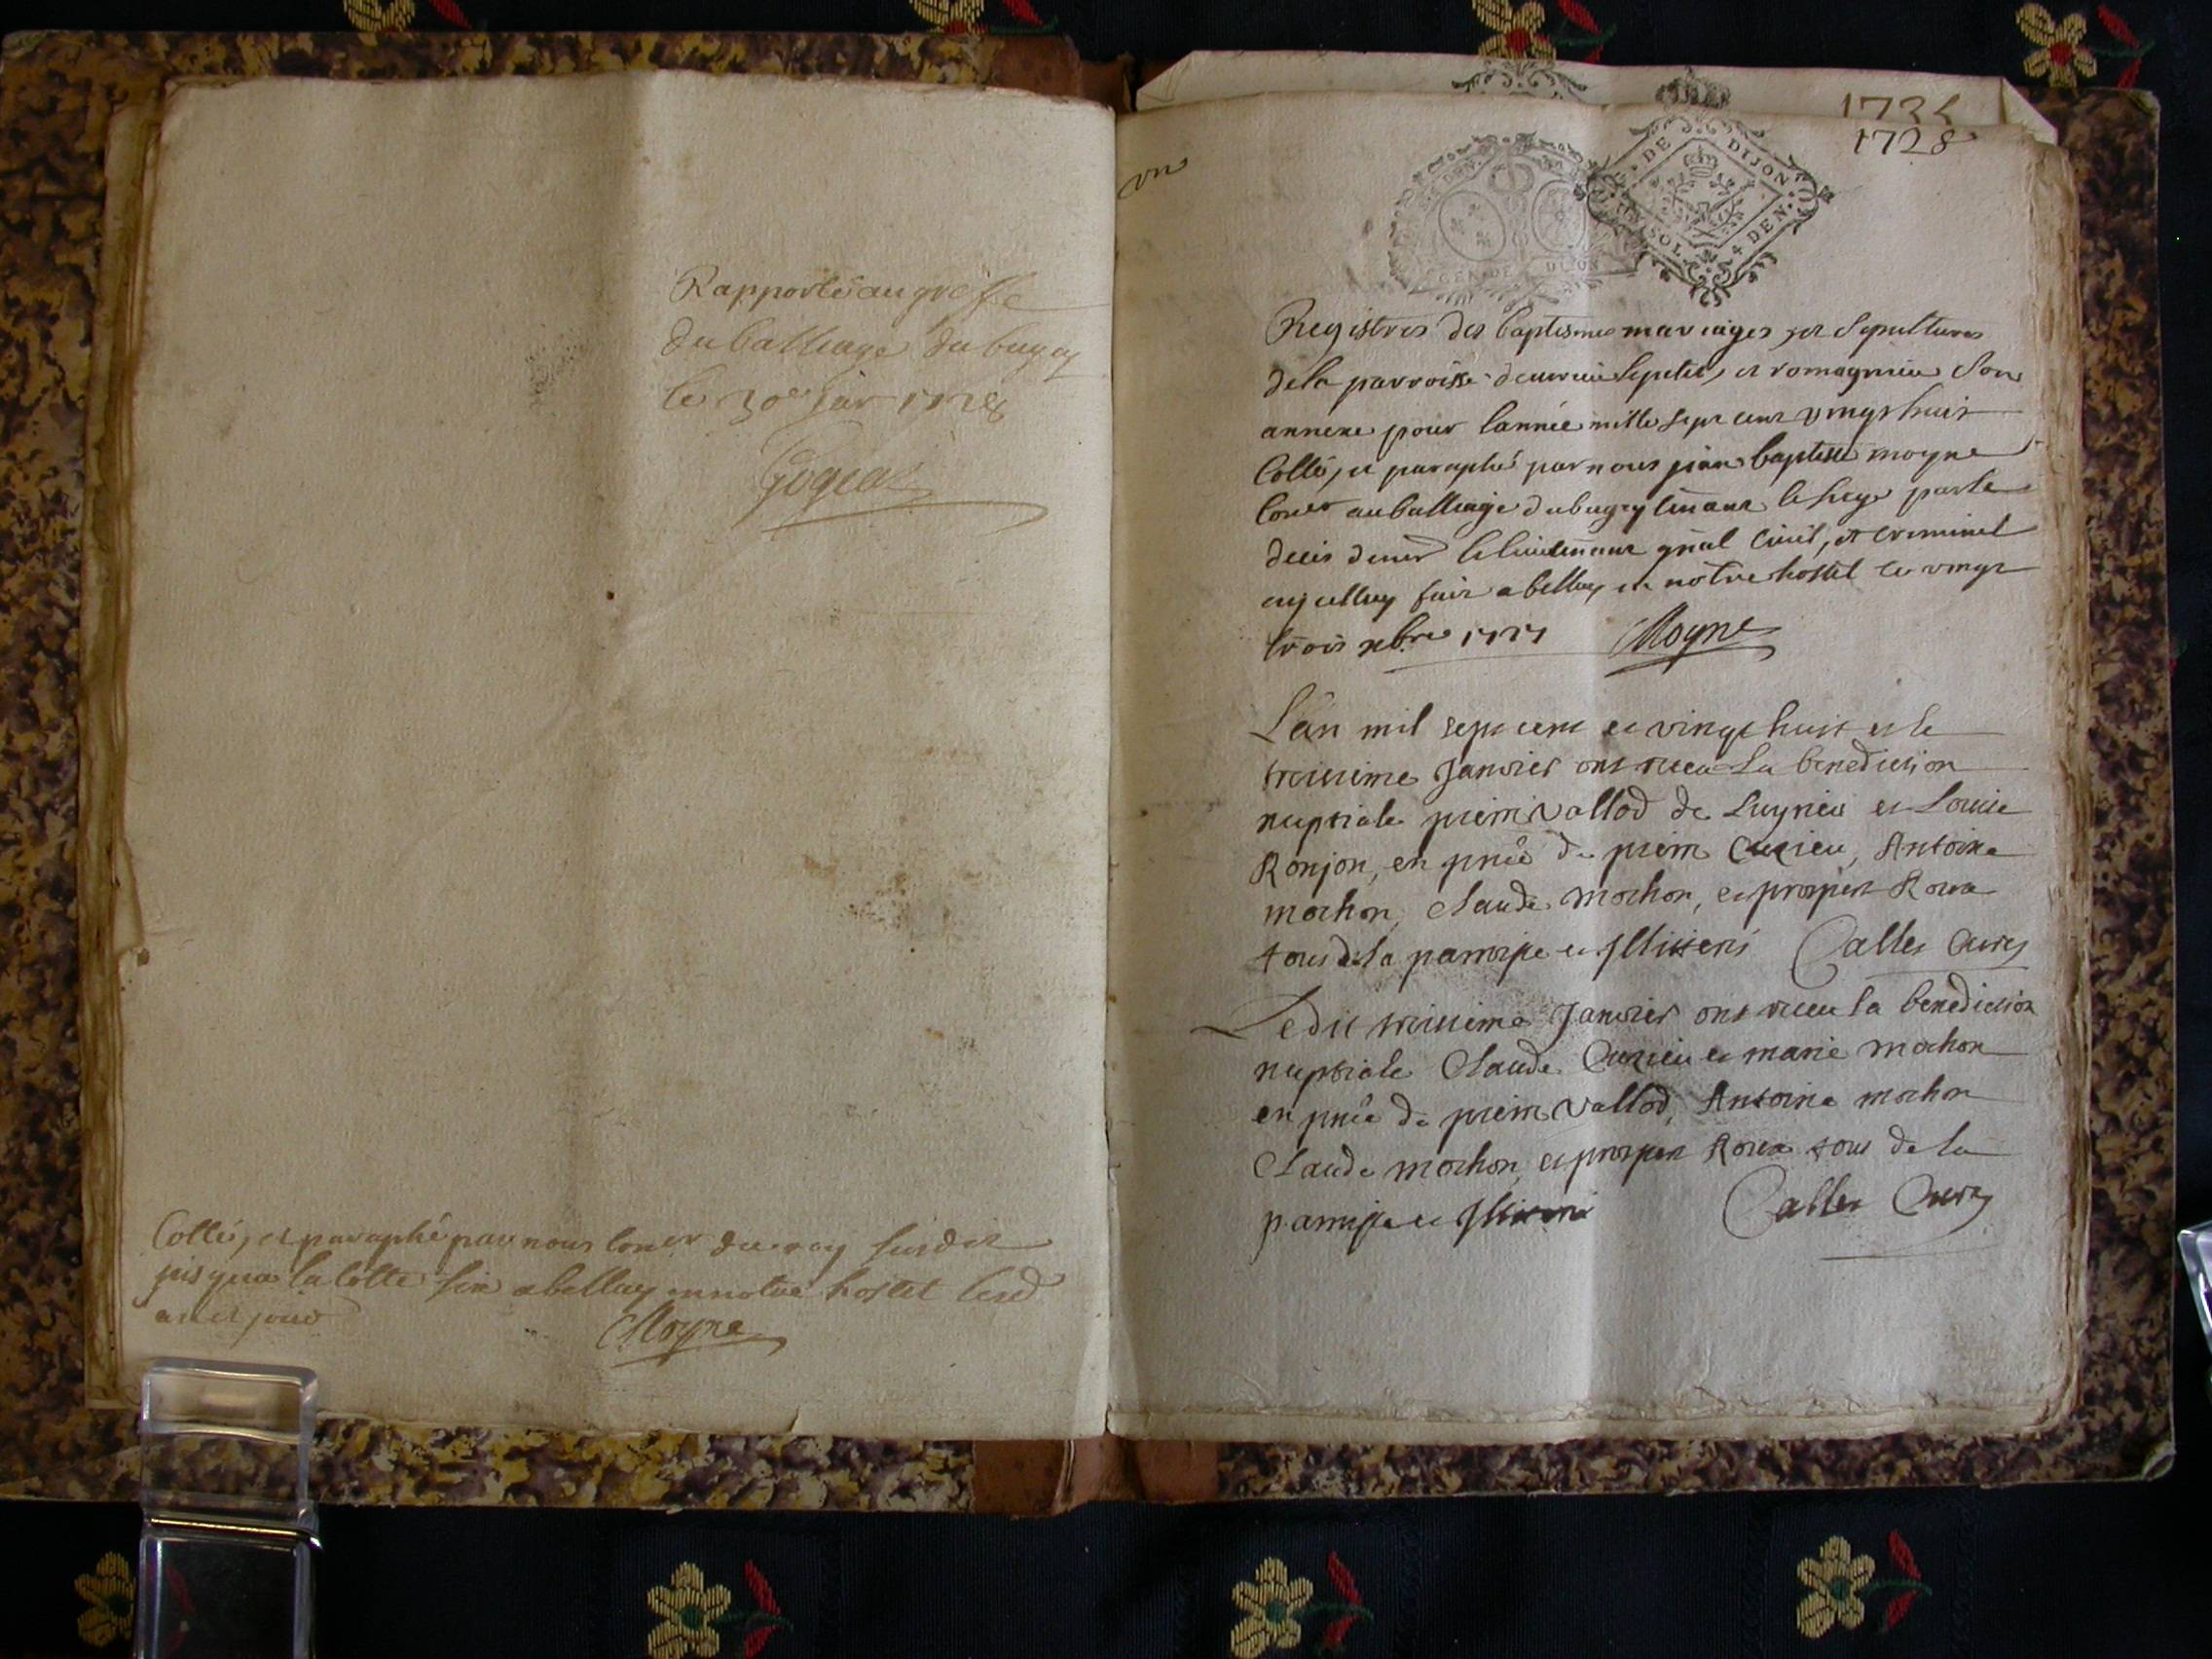 Rapporté au greffe
du balliage du bugey
le 30e 1728
Collé, et paraphé par nous Coner du roy susdit
jusqua la cotte six a belley en notre hostel lesd
an et jour
Moyne
un
1735
1728
GEN DE DIJON
DE DIJON
SOL 4 DEN
Registres des baptesmes mariages, et sepultures
de la parroisse et romagnieu son
annexe pour lannée mille sept cent vingt huit
Collé, et paraphé par nous jean baptiste moyne
Coner au balliage du bugey tenant le siege par le
deces de mr le lieutenant gnal civil, et criminel
en icelluy fait a belley en notre hostel le vingt
trois xbre 1727 Moyne
L'an mil sept cent et vingt huit et le
treizieme Janvier ont receu la benediction
nuptiale vallod de Luyrieu et Louise
Ronjon, en pnce de Cuzieu, Antoine
mochon, Claude mochon, et prosper Roux
tous de la parroisse et Illiterés Calles Curé
Ledit treizieme Janvier ont receu la benediction
nuptiale Claude Cuzieu et marie mochon
en pnce de vallod, Antoine mochon
Claude mochon et prosper Roux tous de la
parroisse et Illiterés Calles Curé